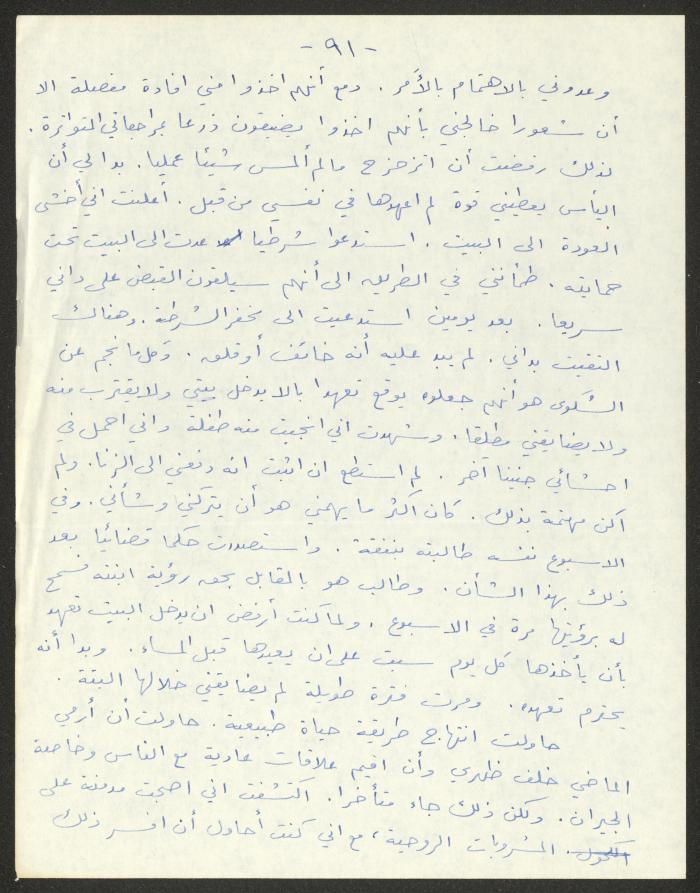 - ٩١ -
وعدوني بالاهتمام بالأمر. ومع أنهم اخذوا مني افادة مفصلة الا
أن شعورا خالجني بأنهم اخذوا يضيقون ذرعا بمراجعاتي المتواترة.
لذلك رفضت أن اتزحزح مالم ألمس شيئا عمليا. بدا لي أن
اليأس يعطيني قوة لم اعهدها في نفسي من قبل. أعلنت اني أخشى
العودة الى البيت. استدعوا شرطيا عدت الى البيت تحت
حمايته. طمأنني في الطريق الى أنهم سيلقون القبض على داني
سريعا. بعد يومين استدعيت الى مخفر الشرطة. وهناك
التقيت بداني. لم يبد عليه أنه خائف أو قلق. وكل ما نجم عن
الشكوى هو أنهم جعلوه يوقع تعهدا بالا يدخل بيتي ولا يقترب منه
ولا يضايقني مطلقا. وشهدت اني انجبت منه طفلة واني احمل في
احشائي جنينا آخر. لم استطع ان اثبت انه دفعني الى الزنا. ولم
اكن مهتمة بذلك. كان اكثر ما يهمني هو أن يتركني وشأني. وفي
الاسبوع نفسه طالبته بنفقة. واستصدرت حكما قضائيا بعد
ذلك بهذا الشأن. وطالب هو بالمقابل بحق رؤية ابنته فسمح
له برؤيتها مرة في الاسبوع. ولما كنت أرفض ان يدخل البيت تعهد
بأن يأخذها كل يوم سبت على ان يعيدها قبل المساء. وبدا أنه
يحترم تعهده. ومرت فترة طويلة لم يضايقني خلالها البتة.
حاولت انتهاج طريقة حياة طبيعية. حاولت أن أرمي
الماضي خلف ظهري وأن اقيم علاقات عادية مع الناس وخاصة
الجيران. ولكن ذلك جاء متأخرا. اكتشفت اني اصبحت مدمنة على
الكحول. المشروبات الروحية، مع اني كنت أحاول أن افسر ذلك